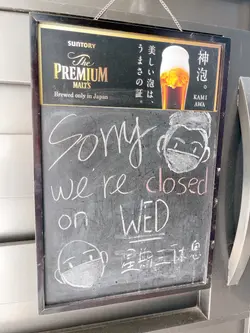 SUNTORY
The
PREMIUM
MALT'S
Brewed only in Japan
美しい泡は、
うまさの証。
神泡。
KAMI
AWA
Sorry
we're closed
on WED
星期三休息